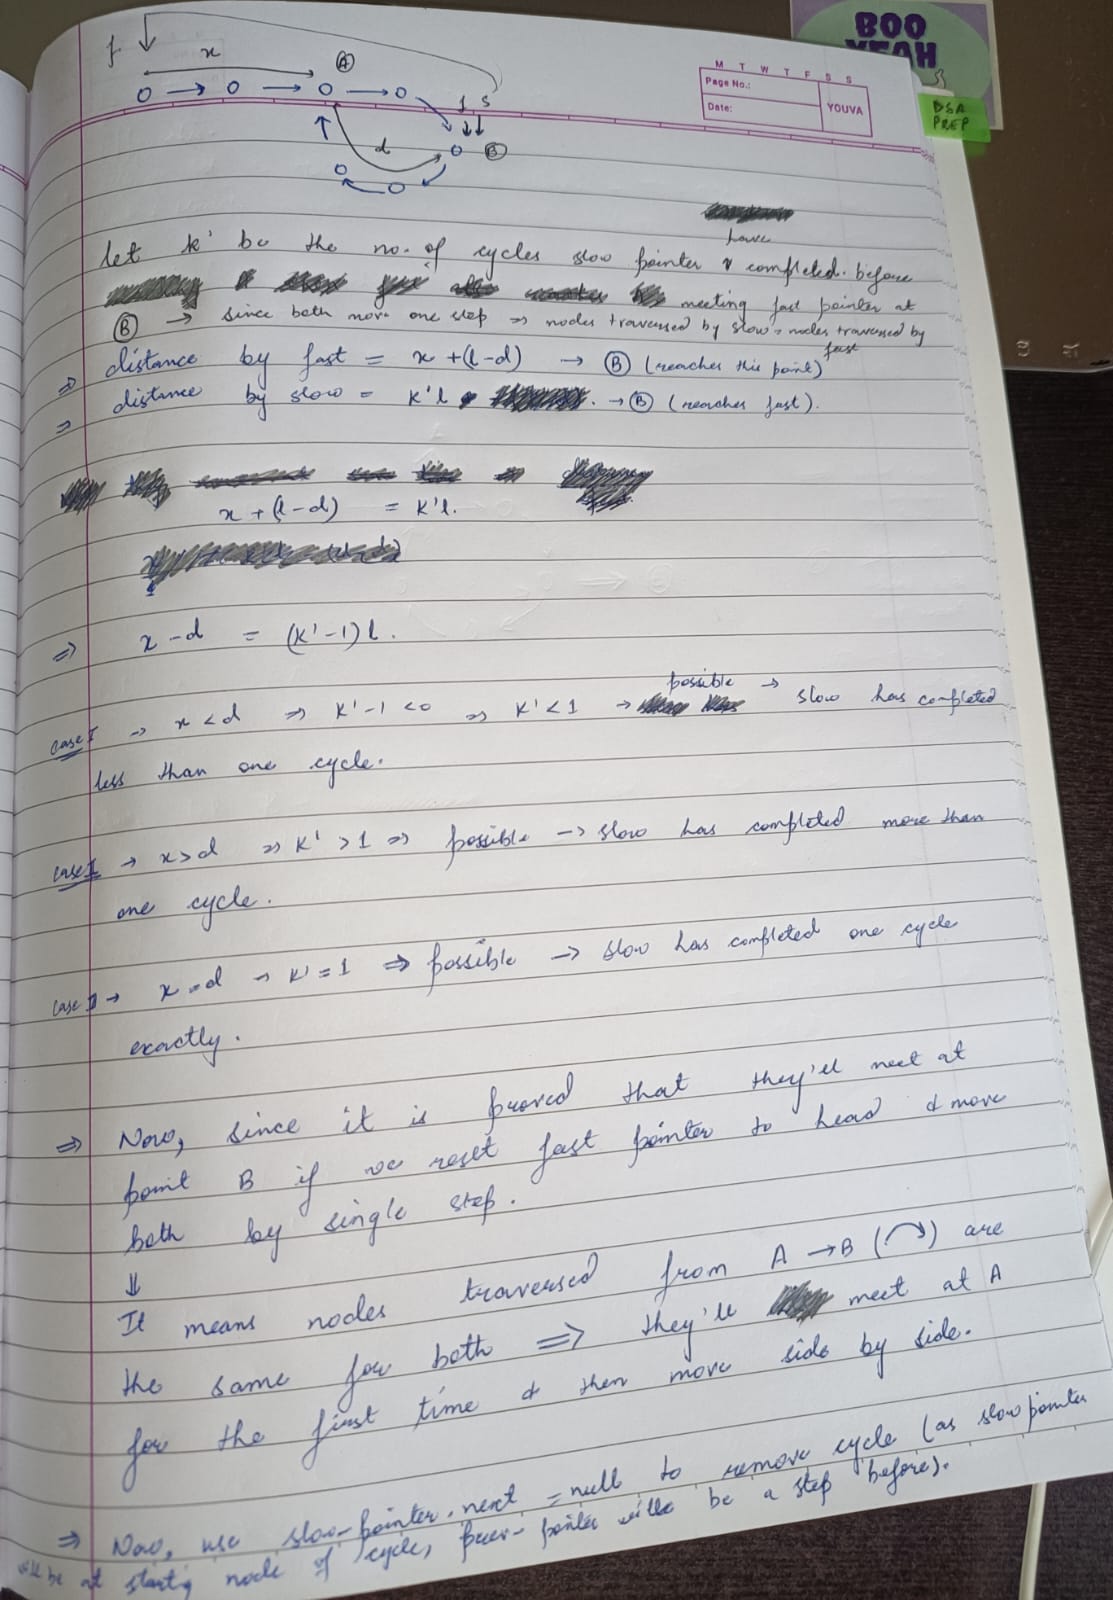 BOO
YEAH
DSA
PREP
M T W T F S S
Page No.:
Date:
YOUVA
f
x
A
f s
d
B
let k' be the no. of cycles slow pointer have completed before
meeting fast pointer at
B → since both move one step ⇒ nodes traversed by slow = nodes traversed by fast
⇒ distance by fast = x + (l-d) → B (reaches this point)
⇒ distance by slow = k'l → B (reaches fast).
x + (l-d) = k'l.
⇒ x - d = (k'-1) l.
case I → x < d ⇒ k'-1 < 0 ⇒ k' < 1 → possible → slow has completed
less than one cycle.
case II → x > d ⇒ k' > 1 ⇒ possible → slow has completed more than
one cycle.
case III → x = d → k' = 1 ⇒ possible → slow has completed one cycle
exactly.
⇒ Now, since it is proved that they'll meet at
point B if we reset fast pointer to head & move
both by single step.
⇓
It means nodes traversed from A → B (↷) are
the same for both ⇒ they'll meet at A
for the first time & then move side by side.
⇒ Now, use slow-pointer.next = null to remove cycle (as slow pointer
will be at starting node of cycle, prev-pointer will be a step before).